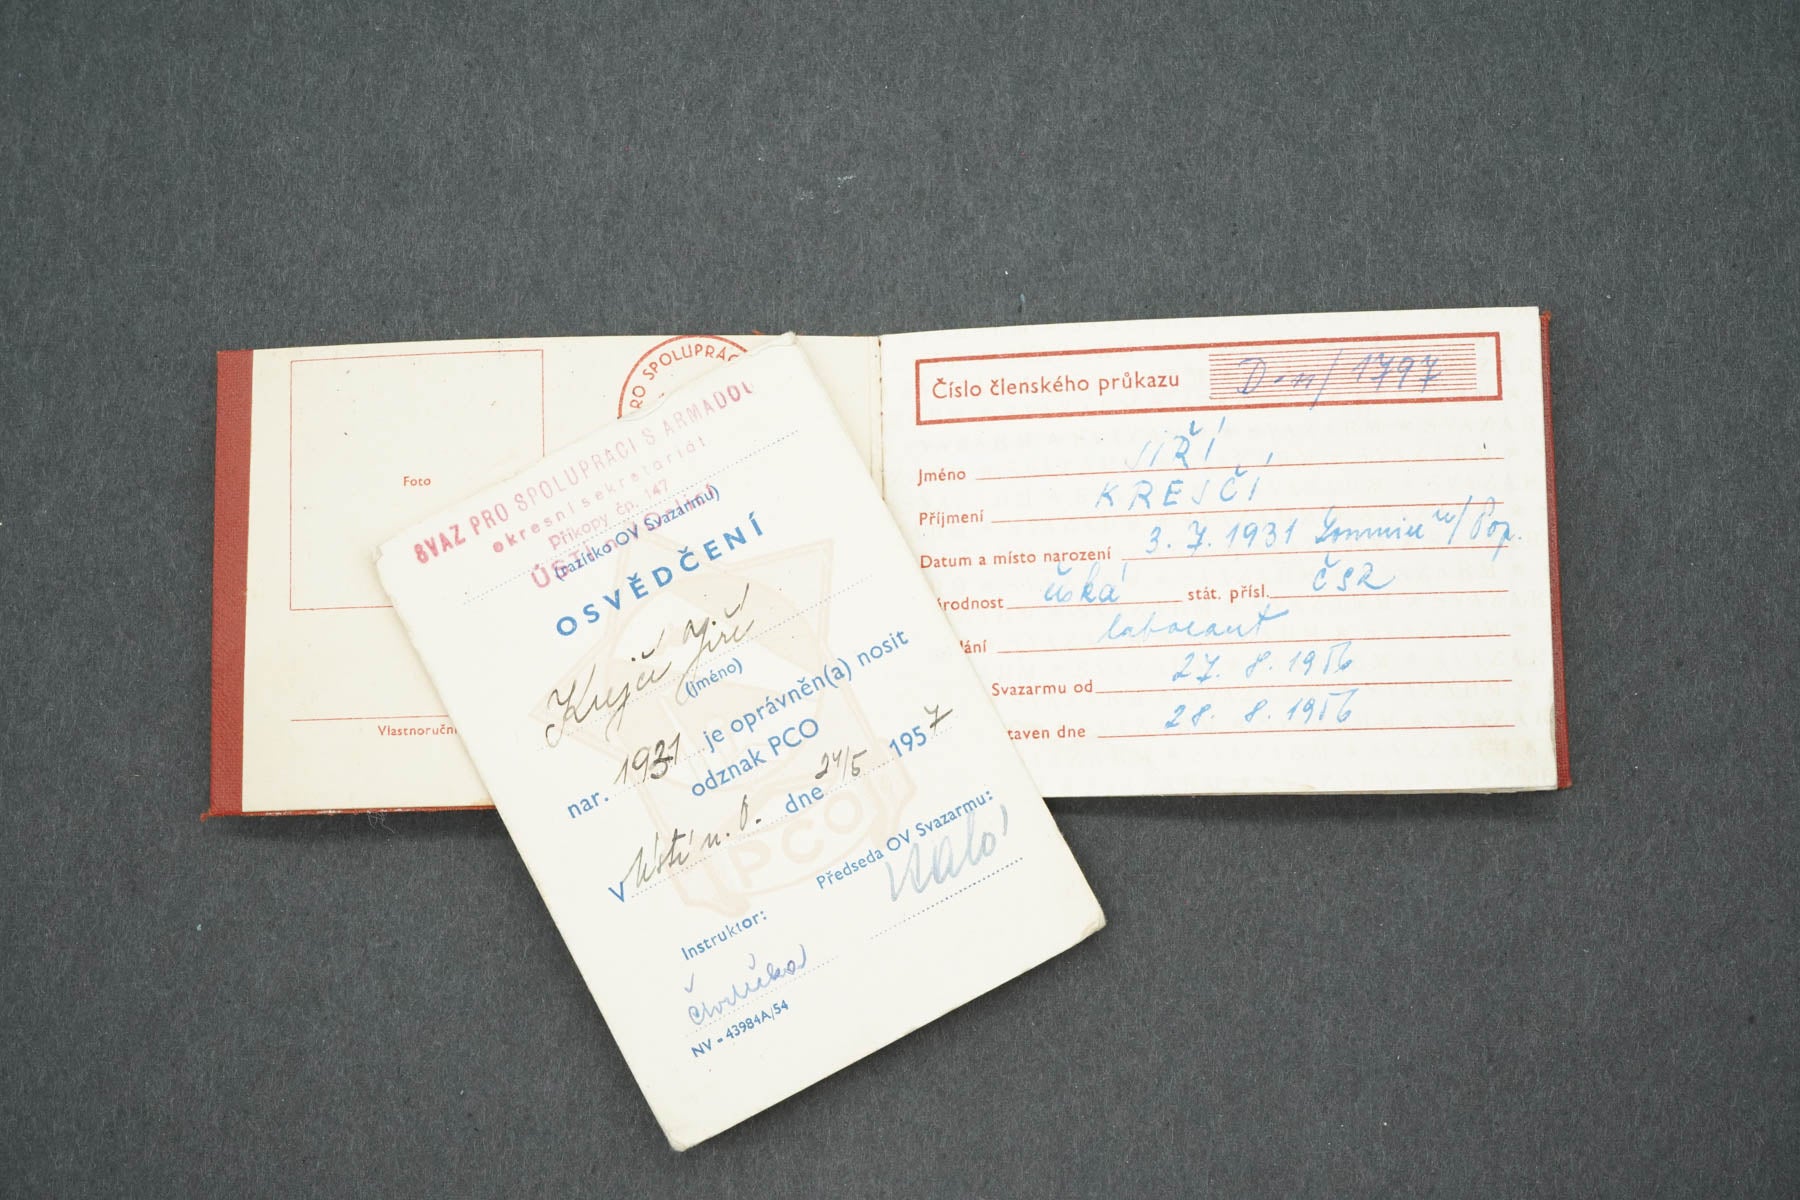 Foto
RO SPOLUPRÁC
Vlastnoruční
SVAZ PRO SPOLUPRACI S ARMADOU
okresní sekretariát
Příkopy čp. 147
ÚSTÍ n. Orlicí
(razítko OV Svazarmu)
OSVĚDČENÍ
Krejčí Jiří
(jméno)
nar. 1931 je oprávněn(a) nosit
odznak PCO
V Ústí n. O. dne 24/5 1957
PCO
Předseda OV Svazarmu:
Instruktor:
NV - 43984A/54
Číslo členského průkazu D-n/1797
Jméno JIŘÍ
Příjmení KREJČÍ
Datum a místo narození 3. 7. 1931 Lomnice n/Pop.
árodnost česká stát. přísl. ČSR
lání laborant
Svazarmu od 27. 8. 1956
taven dne 28. 8. 1956